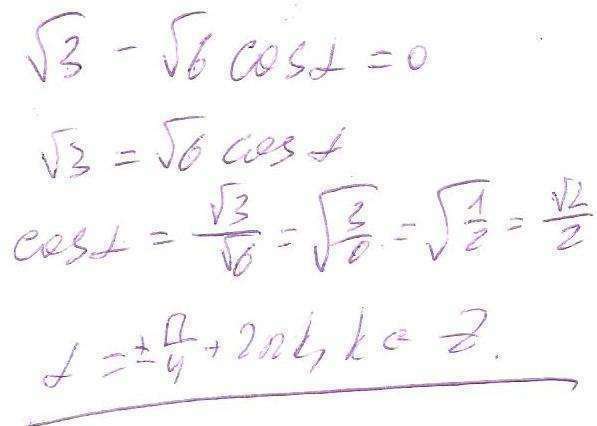 √3 - √6 cosα = 0
√3 = √6 cosα
cosα = √3/√6 = √(3/6) = √(1/2) = √2/2
α = ±π/4 + 2πk, k ∈ Z.